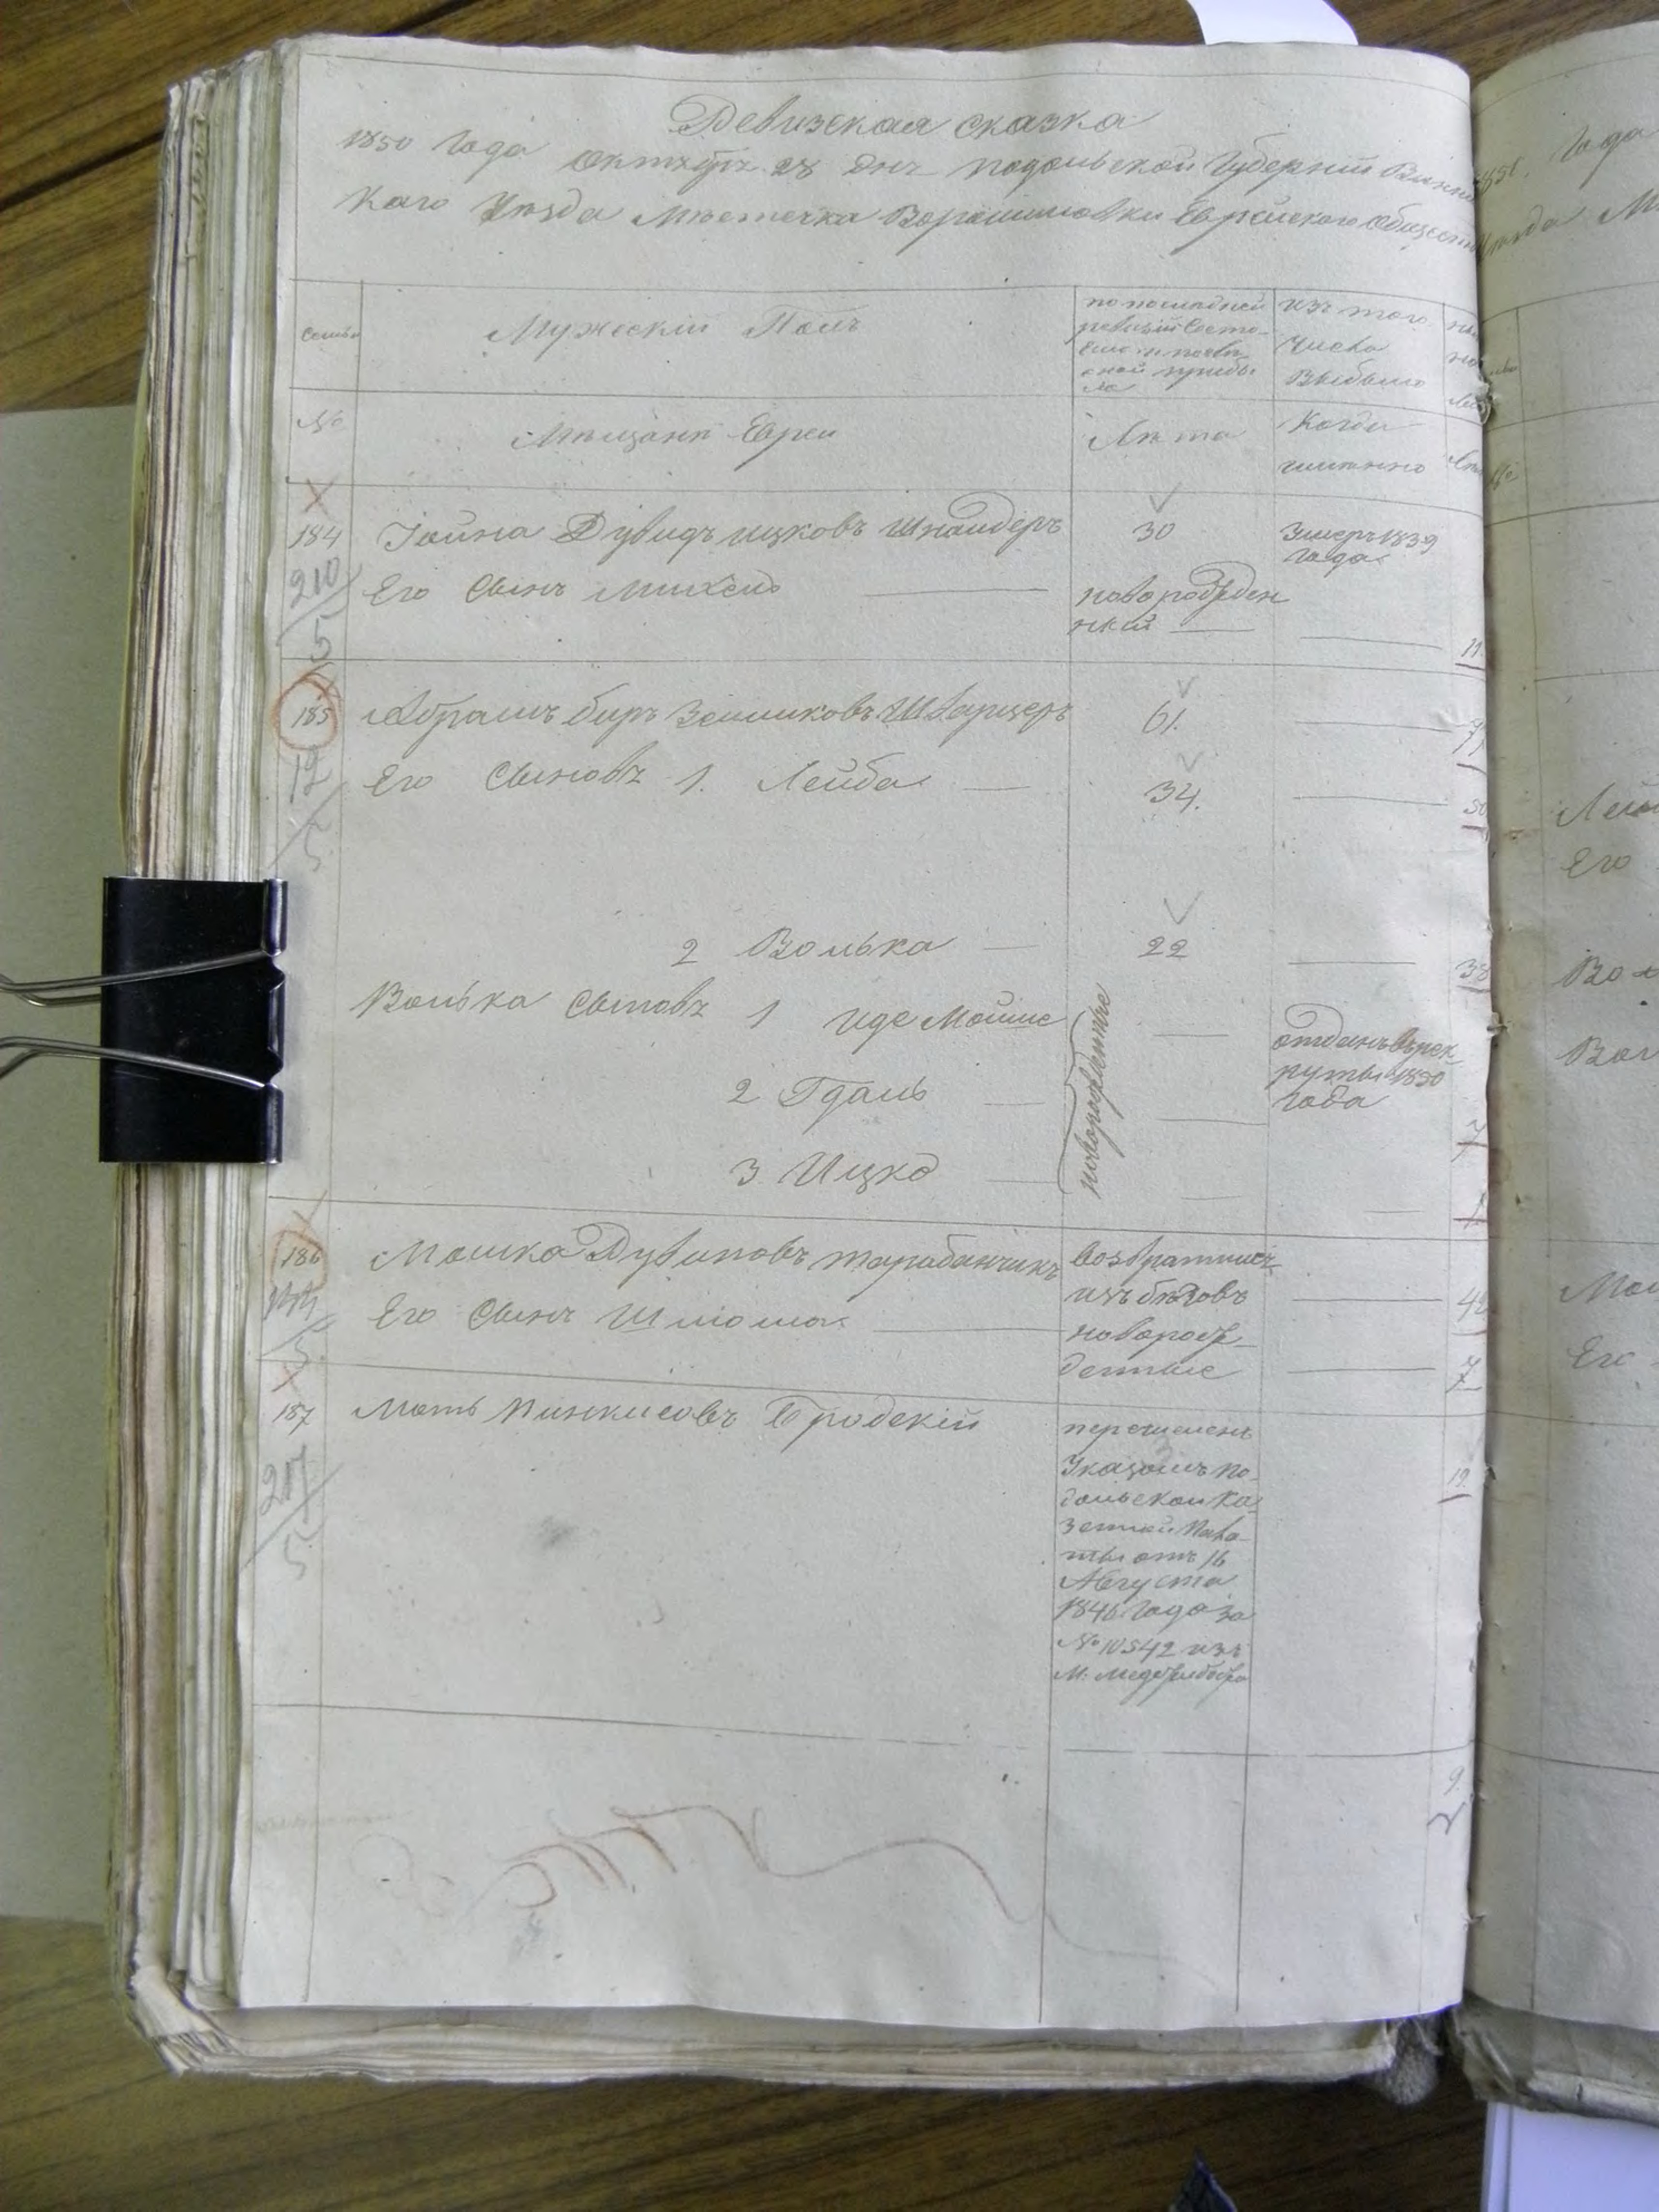 Ревизская сказка
1850 Года Октября 28 дня Подольской Губернии Винни
каго Уезда Местечка Ворошиловки Еврейского Общест
Семьи
Мужескій Полъ
по последней
ревизіи состо-
яло и после
оной прибы-
ло
изъ того
числа
выбыло
№
Мещане Евреи
Лета
Когда
имянно
184 Іойна Дувидъ Ицковъ Шнайдеръ 30 Умеръ 1839
года
210
5
Его Сынъ Михель новорожден
ный 11
185 Абрамъ Беръ Зельмиковъ Шварцеръ 61. 77
12
5
Его Сыновъ 1. Лейба 34. 50
2 Волька 22 38
Волька Сыновъ 1 Иде Моише новорожденные отданъ въ рек
руты 1850
года
2 Гдаль 7
3 Ицко 1
186 Мошко Дувановъ Тарабанчикъ возвратился
изъ бѣговъ 42
5
Его Сынъ Шлиома новорож-
денные 7
187 Моть Пинкисовъ Бродскій перечисленъ
Указомъ По-
дольской Ка
зенной Пала-
ты отъ 16
Августа
1846 Года за
№ 10542 изъ
М: Меджибожа
19
207
5
9